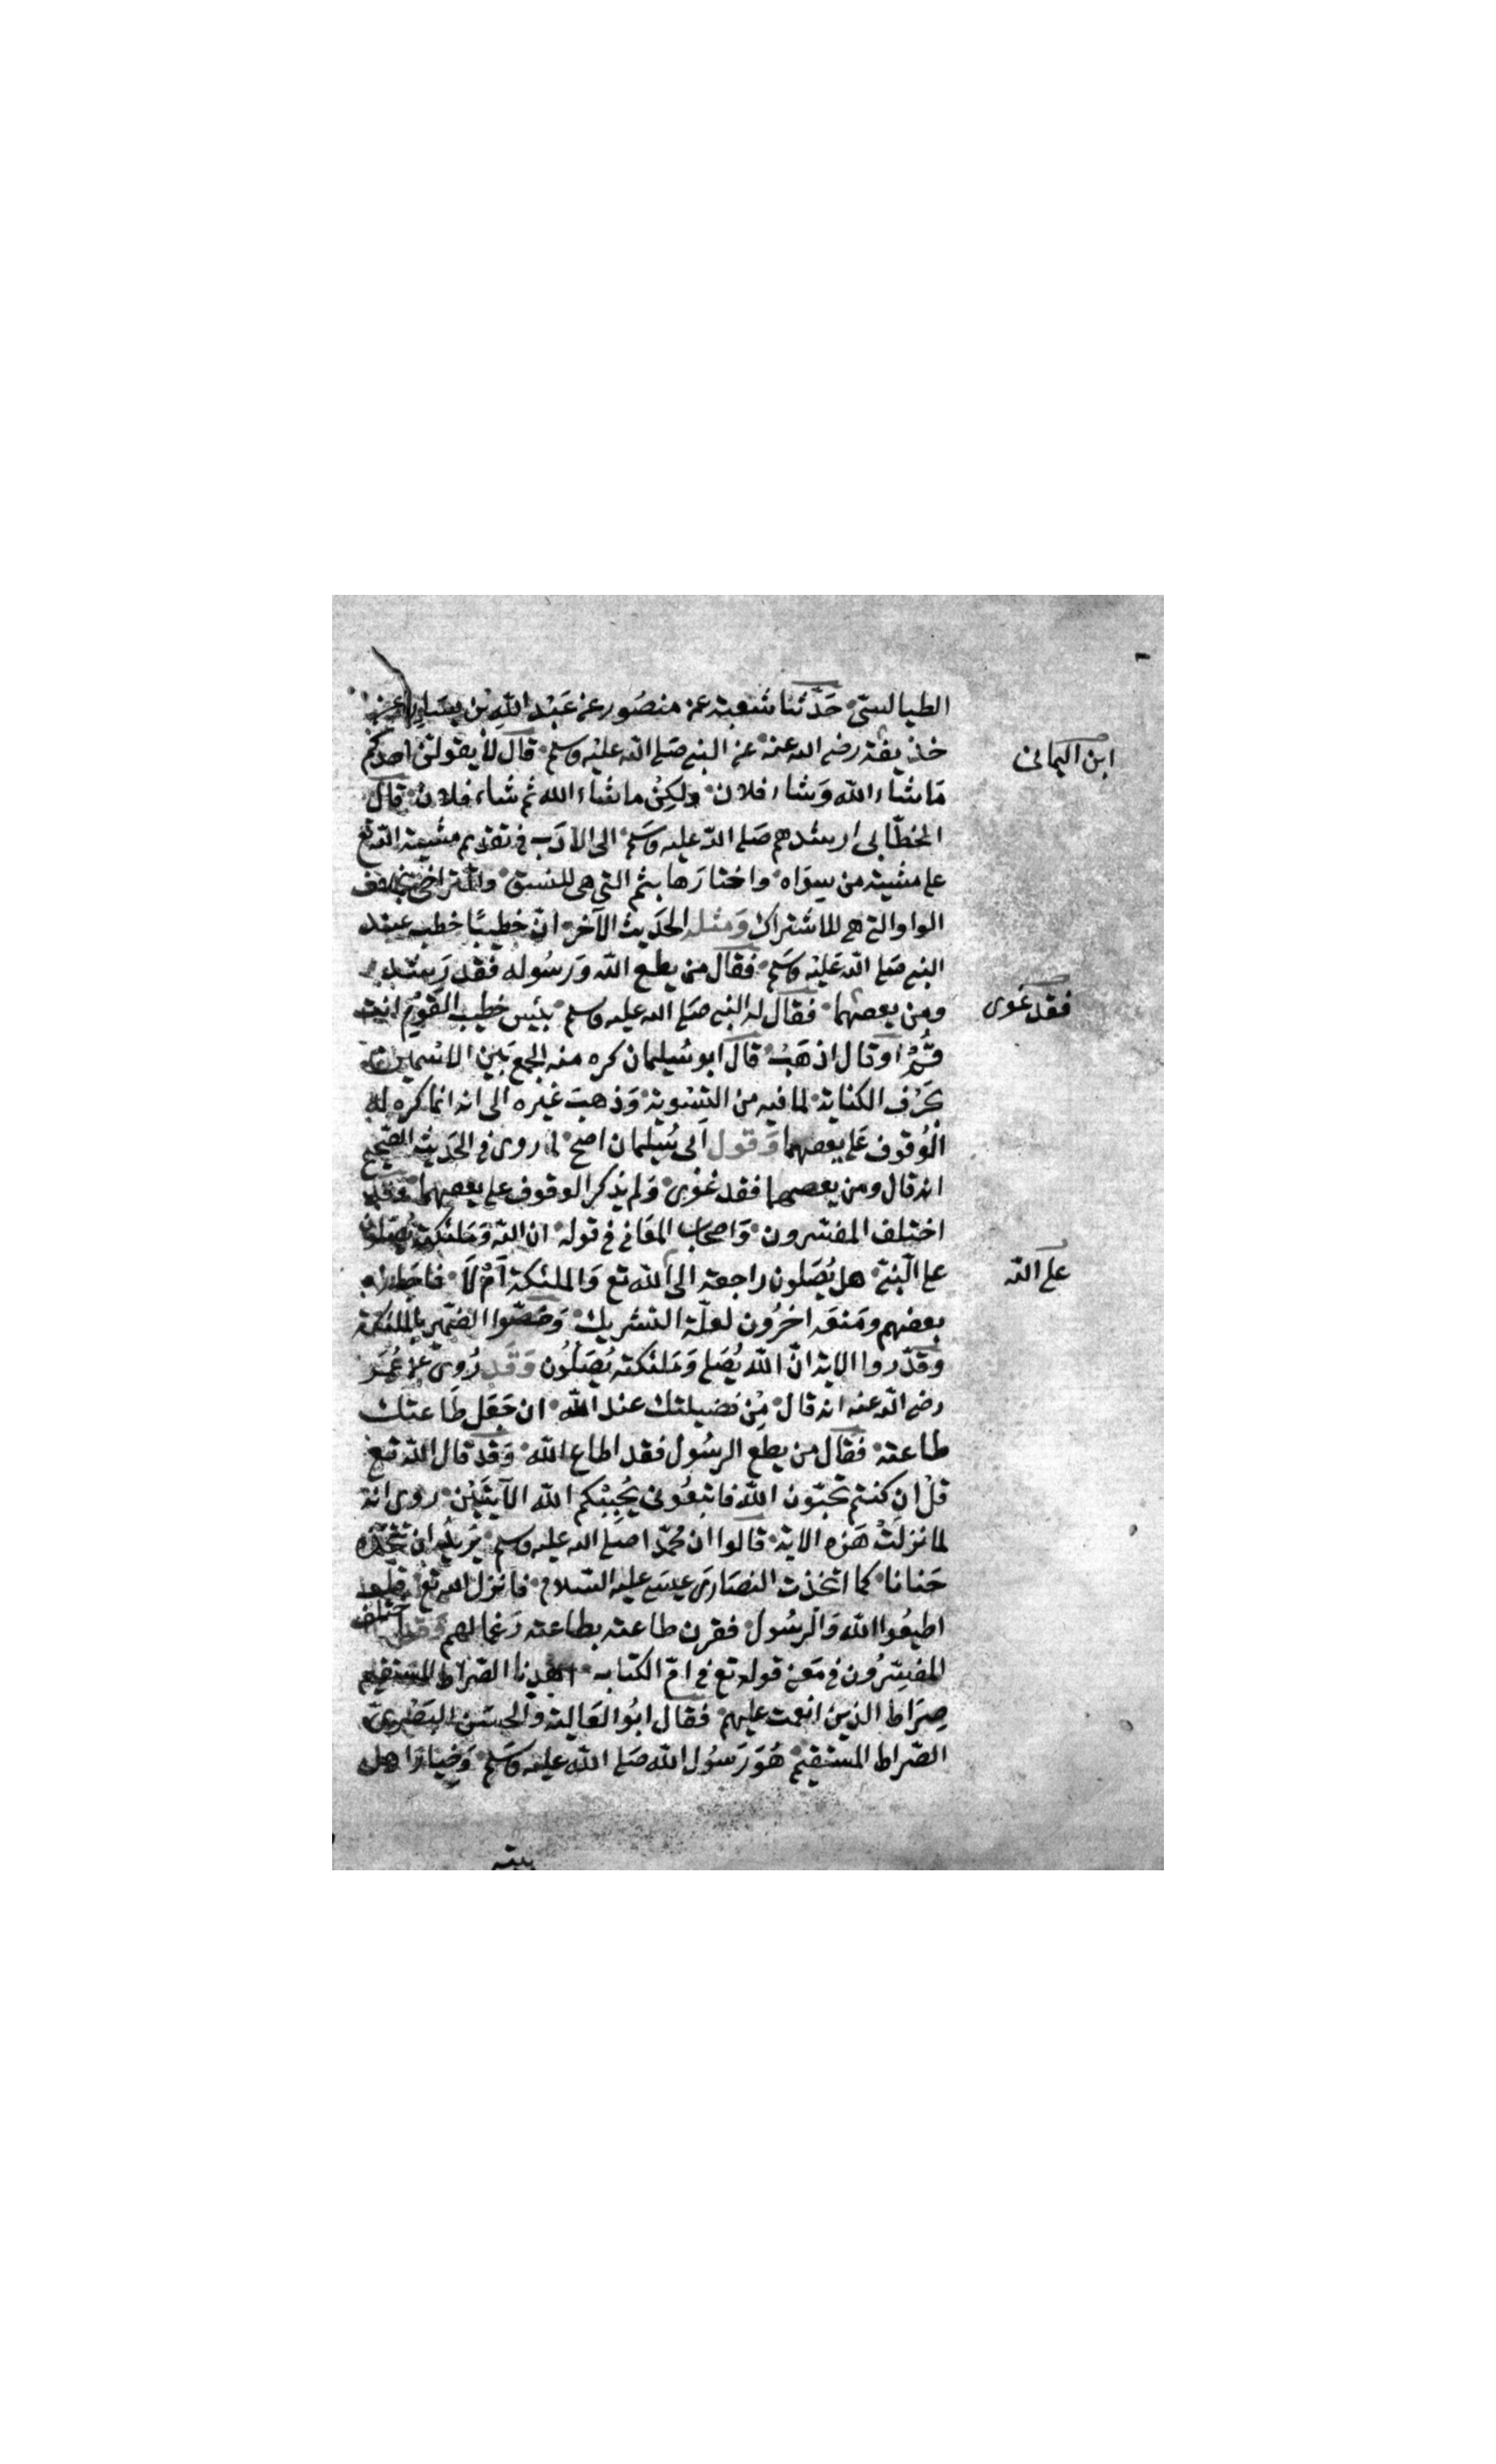 الطيالسيّ حَدّثنا شعبة عن منصُور عن عَبْد اللهِ بْن يسَارٍ عن
حذيفة رضي الله عنه عن النبي صَلى الله عليْه وسلم قال لا يقولنّ احدكم
ابن اليمانى
مَا شَاء الله وَشاء فلان ولكِنْ ما شاء الله ثم شاء فلان قال
الخطّابى ارشدهم صَلى الله عليه وسَلم الى الادَب في تقديم مشيئة الله تع
على مشيئة من سِوَاه واختارَها بثم التى هى للنسق والتراخى بخلاف
الواو التى هى للاشتراك وَمثله الحَديث الآخر انّ خطيبًا خطب عند
النبي صَلى الله عَليْه وسَلم فقال من يطع الله وَرسُوله فقد رَشد
ومن يعصهما فقال له النبي صَلى الله عليه وسلم بئس خطيب القوْم انت
فقد غوى
قُمْ او قال اذهَبْ قال ابو سُليمان كره منه الجمع بَيْن الاسْمين
بحَرْف الكناية لما فيه من التسْوية وَذهبَ غيْره الى انه انما كره له
الوُقوف عَلى يعصهما وَقول ابى سُليمان اصح لما روى في الحَديث الصّحيح
انه قال ومن يعصهما فقد غوَى وَلم يذكر الوقوف على يعصهما وَقد
اختلف المفسّرون وَاصحاب المعَانى في قوله ان الله وَمَلئكته يُصَلون
على النّبيّ هل يُصَلون راجعة الى الله تع وَالملئكة اَمْ لَا فاجازه
على الله
بعضهم ومَنعَه اخرُون لعلّة التشريك وَخصّوا الضّمير بالملئكة
وقدّروا الاية انّ الله يُصَلى وَمَلئكته يُصَلّون وَقَد رُوىَ عن عُمَر
رضي الله عنه انه قال مِنْ فضيلتك عند الله ان جَعَل طَاعتك
طاعته فقال من يطع الرسُول فقد اطاع الله وَقد قال الله تع
قلْ ان كنتم تحبّون الله فاتبعُونى يُحْبِبْكم الله الآيتَيْن روى انه
لما نزلتْ هَذه الاية قالوا ان مُحمّدا صلى الله عليه وسلم يُريدُ ان نتّخذه
حَنانا كما اتخذت النصَارىَ عيسَى عليه السّلام فانزل الله تع قل
اطيعُوا الله وَالرسُول فقرن طاعته بطاعته رَغما لهم وَقد اختلف
المفسّرُون في مَعنى قوله تع في امّ الكتاب اهْدنا الصّراط المستقيم
صِرَاط الذين انعمت عليهم فقال ابُو العَالية وَالحسَن البَصْرىّ
الصّراط المستقيم هُوَ رَسُول الله صَلى الله عليه وسَلم وَخيارَ اهل
بيته